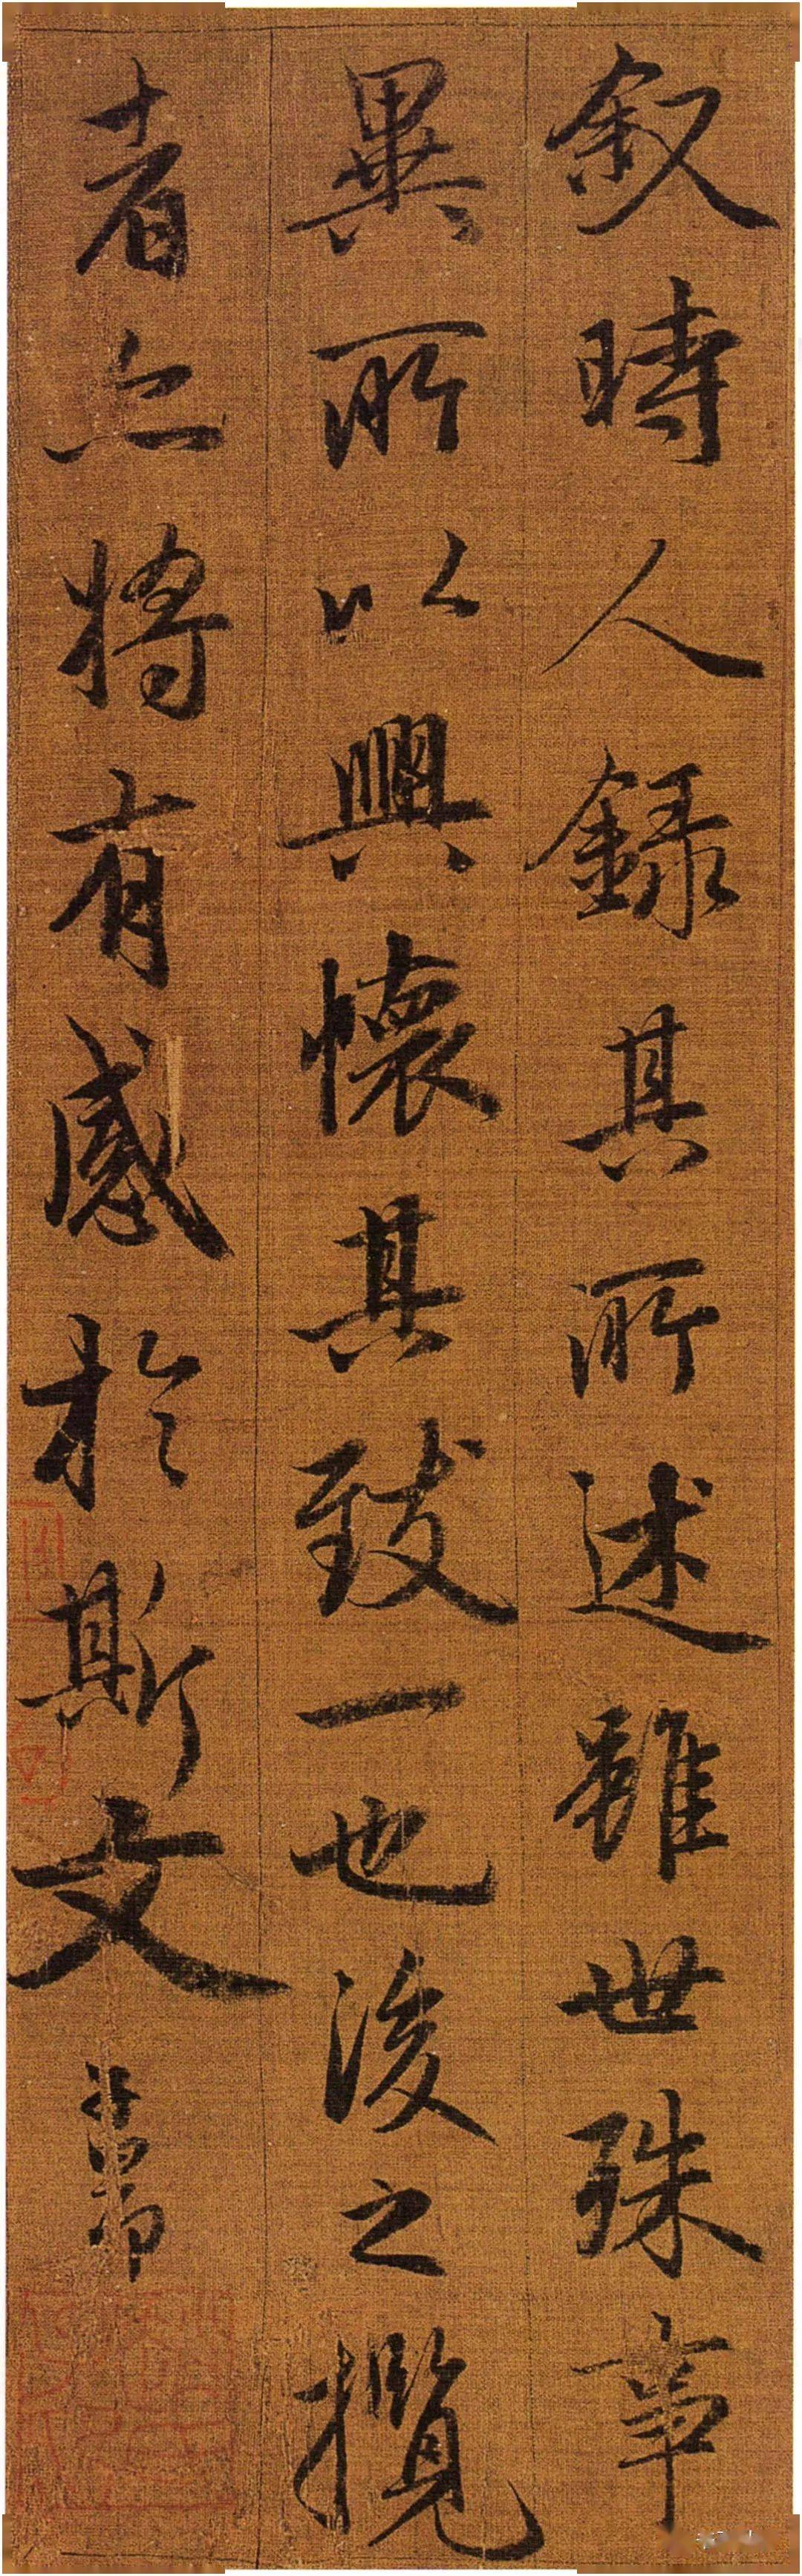 叙時人録其所述雖世殊事
異所以興懷其致一也後之攬
者亦將有感於斯文 子昂